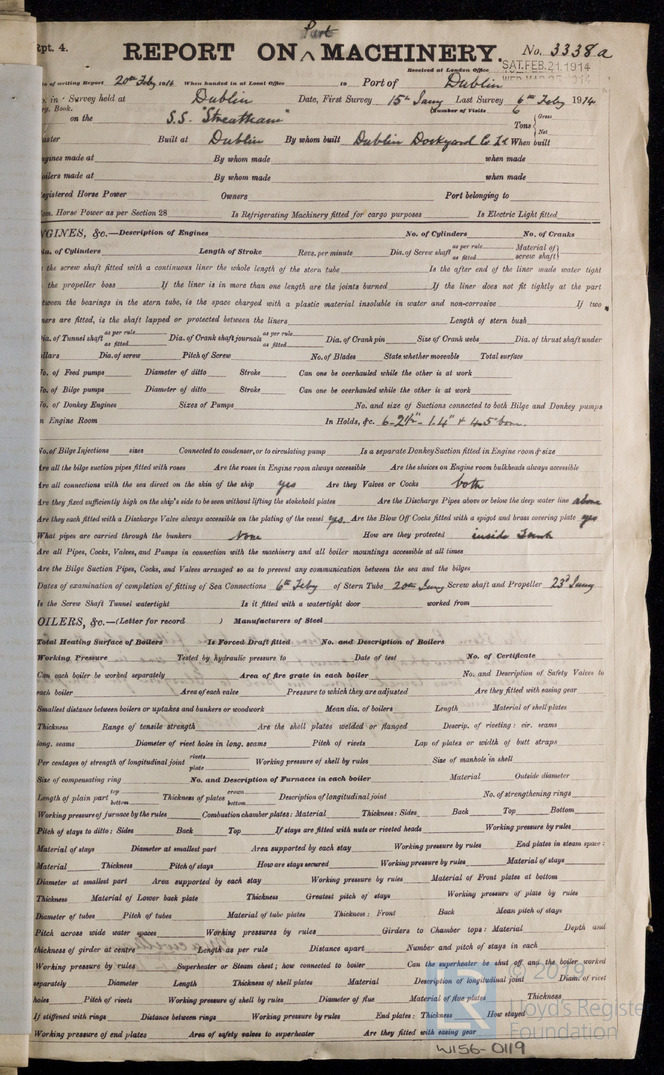 Rpt. 4.
Part
REPORT ON ^ MACHINERY.
No. 3338a
Received at London Office
SAT. FEB. 21. 1914
of writing Report 20th Feby 1914 When handed in at Local Office 10 Port of Dublin
in Survey held at Dublin Date, First Survey 15th Jany Last Survey 6th Feby 1914
Book. (Number of Visits 6
on the S.S. "Streatham" Tons { Gross Net
Master Built at Dublin By whom built Dublin Dockyard Co Ld When built
Engines made at By whom made when made
Boilers made at By whom made when made
Registered Horse Power Owners Port belonging to
Nom. Horse Power as per Section 28 Is Refrigerating Machinery fitted for cargo purposes Is Electric Light fitted
ENGINES, &c.—Description of Engines No. of Cylinders No. of Cranks
Dia. of Cylinders Length of Stroke Revs. per minute Dia. of Screw shaft as per rule as fitted Material of screw shaft
the screw shaft fitted with a continuous liner the whole length of the stern tube Is the after end of the liner made water tight
the propeller boss If the liner is in more than one length are the joints burned If the liner does not fit tightly at the part
between the bearings in the stern tube, is the space charged with a plastic material insoluble in water and non-corrosive If two
liners are fitted, is the shaft lapped or protected between the liners Length of stern bush
Dia. of Tunnel shaft as per rule as fitted Dia. of Crank shaft journals as per rule as fitted Dia. of Crank pin Size of Crank webs Dia. of thrust shaft under
collars Dia. of screw Pitch of Screw No. of Blades State whether moveable Total surface
No. of Feed pumps Diameter of ditto Stroke Can one be overhauled while the other is at work
No. of Bilge pumps Diameter of ditto Stroke Can one be overhauled while the other is at work
No. of Donkey Engines Sizes of Pumps No. and size of Suctions connected to both Bilge and Donkey pumps
In Engine Room In Holds, &c. 6-2½"- 1.4" &
No. of Bilge Injections sizes Connected to condenser, or to circulating pump Is a separate Donkey Suction fitted in Engine room & size
Are all the bilge suction pipes fitted with roses Are the roses in Engine room always accessible Are the sluices on Engine room bulkheads always accessible
Are all connections with the sea direct on the skin of the ship yes Are they Valves or Cocks both
Are they fixed sufficiently high on the ship's side to be seen without lifting the stokehold plates Are the Discharge Pipes above or below the deep water line above
Are they each fitted with a Discharge Valve always accessible on the plating of the vessel yes Are the Blow Off Cocks fitted with a spigot and brass covering plate yes
What pipes are carried through the bunkers None How are they protected inside Tank
Are all Pipes, Cocks, Valves, and Pumps in connection with the machinery and all boiler mountings accessible at all times
Are the Bilge Suction Pipes, Cocks, and Valves arranged so as to prevent any communication between the sea and the bilges
Dates of examination of completion of fitting of Sea Connections 6th Feby of Stern Tube 20th Jany Screw shaft and Propeller 23d Jany
Is the Screw Shaft Tunnel watertight Is it fitted with a watertight door worked from
BOILERS, &c.—(Letter for record ) Manufacturers of Steel
Total Heating Surface of Boilers Is Forced Draft fitted No. and Description of Boilers
Working Pressure Tested by hydraulic pressure to Date of test No. of Certificate
Can each boiler be worked separately Area of fire grate in each boiler No. and Description of Safety Valves to
each boiler Area of each valve Pressure to which they are adjusted Are they fitted with easing gear
Smallest distance between boilers or uptakes and bunkers or woodwork Mean dia. of boilers Length Material of shell plates
Thickness Range of tensile strength Are the shell plates welded or flanged Descrip. of riveting: cir. seams
long. seams Diameter of rivet holes in long. seams Pitch of rivets Lap of plates or width of butt straps
Per centages of strength of longitudinal joint rivets plate Working pressure of shell by rules Size of manhole in shell
Size of compensating ring No. and Description of Furnaces in each boiler Material Outside diameter
Length of plain part top bottom Thickness of plates crown bottom Description of longitudinal joint No. of strengthening rings
Working pressure of furnace by the rules Combustion chamber plates: Material Thickness: Sides Back Top Bottom
Pitch of stays to ditto: Sides Back Top If stays are fitted with nuts or riveted heads Working pressure by rules
Material of stays Diameter at smallest part Area supported by each stay Working pressure by rules End plates in steam space:
Material Thickness Pitch of stays How are stays secured Working pressure by rules Material of stays
Diameter at smallest part Area supported by each stay Working pressure by rules Material of Front plates at bottom
Thickness Material of Lower back plate Thickness Greatest pitch of stays Working pressure of plate by rules
Diameter of tubes Pitch of tubes Material of tube plates Thickness: Front Back Mean pitch of stays
Pitch across wide water spaces Working pressures by rules Girders to Chamber tops: Material Depth and
thickness of girder at centre Length as per rule Distance apart Number and pitch of stays in each
Working pressure by rules Superheater or Steam chest; how connected to boiler Can the superheater be shut off and the boiler worked
separately Diameter Length Thickness of shell plates Material Description of longitudinal joint Diam. of rivet
holes Pitch of rivets Working pressure of shell by rules Diameter of flue Material of flue plates Thickness
If stiffened with rings Distance between rings Working pressure by rules End plates: Thickness How stayed
Working pressure of end plates Area of safety valves to superheater Are they fitted with easing gear
© 2019
Lloyd's Register
Foundation
W156-0119